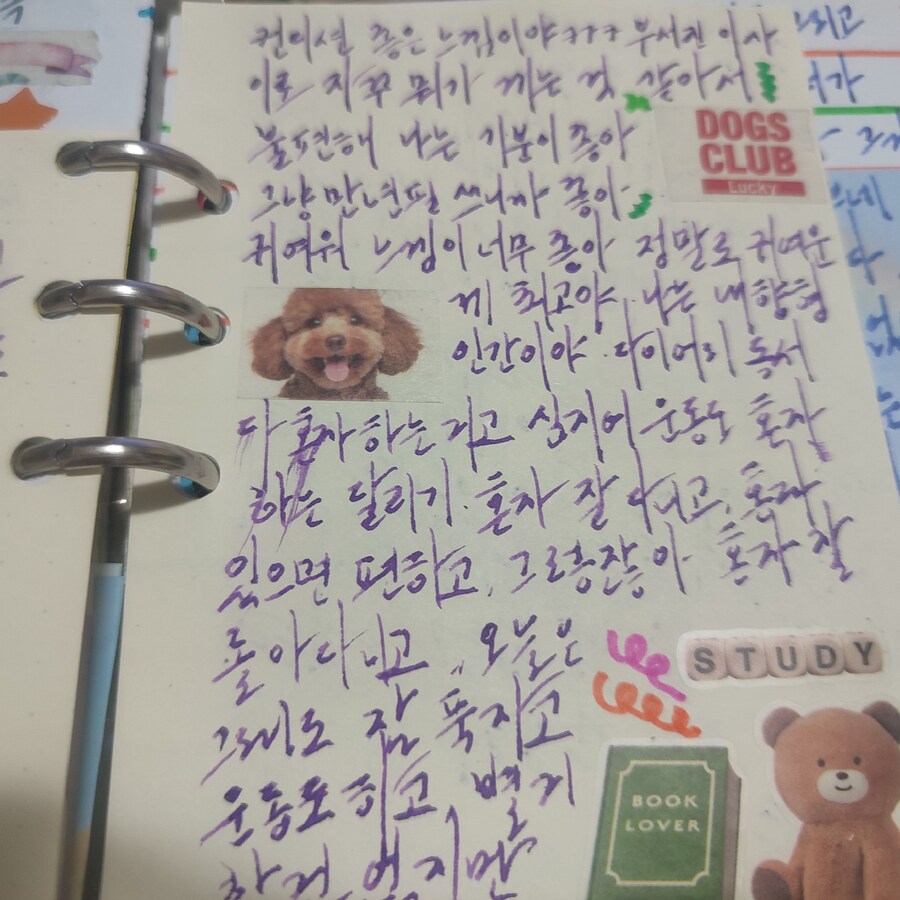 컨디션 좋은 느낌이야 ㅋㅋㅋ 부서진 이사
이로 자꾸 뭐가 끼는 것 같아서
불편해 나는 기분이 좋아
DOGS
CLUB
Lucky
그냥 만년필 쓰니까 좋아
귀여워 느낌이 너무 좋아 정말로 귀여운
게 최고야. 나는 내향형
인간이야. 다이어리 독서
다 혼자 하는 거고 심지어 운동도 혼자
하는 달리기. 혼자 잘 다니고, 혼자
있으면 편하고, 그렇잖아 혼자 잘
돌아다니고 .. 오늘은
STUDY
그래도 잠 푹자고
운동도 하고, 별거
BOOK
LOVER
한건 없지만